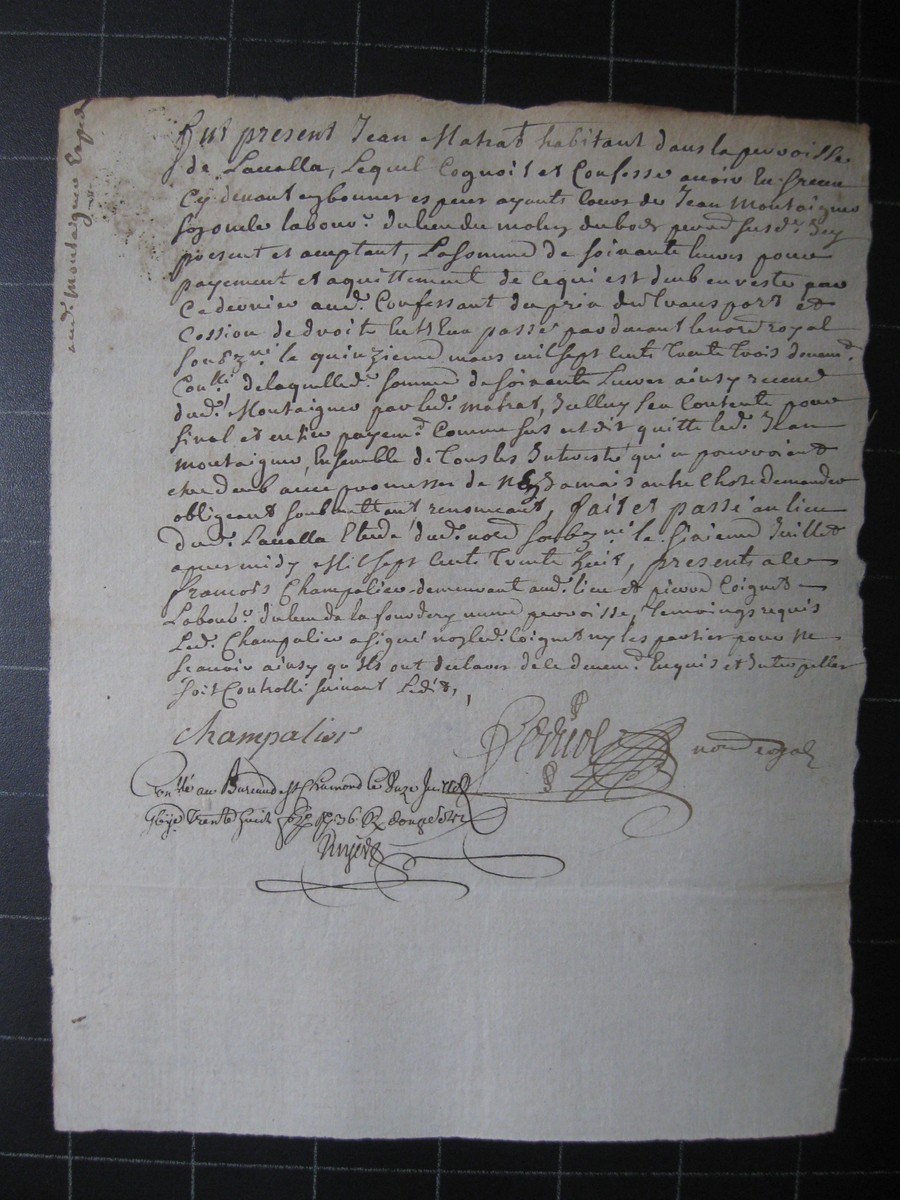 aud. Montaigner Exped
Fut present Jean Matrat habitant dans la parroisse
de Lavalla, Lequel Cognoit et Confesse avoir En Receu
Cy devant en bonnes especes ayants cours de Jean Montaigner
labour. du lieu du molin du bost parr. susd. Icy
present et acceptant, La somme de soixante livres pour
payement et aquittement de ce qui est deub en reste par
ce dernier aud. Confessant du prix du transport et
Cession de droits passé pardevant le no.re royal
soubz.né le quinzieme mars mil sept cents trente trois
Con.llé de laquelle d. somme de soixante Livres ainsy receue
dud. Montaigner par led. Matrat, Icelluy sen contente pour
final et entier payem.t Comme sus est dit quitte led. Jean
montaigner, Ensemble de tous les Interests qui en pourroient
estre deub avec promesses de N'En Jamais autre Chose demander
obligeant soubmettant renonceant, fait et passé au lieu
dud. Lavalla Etude dud. no.re soubz.né le sixieme Juillet
apres midy Mil sept cents trente huit, presents a ce
francois Champalier demeurant aud. lieu et pierre Coignet
Labour. du lieu de la fondery meme parroisse, Temoings requis
Led. Champalier a signé non led. Coignet ny les parties pour ne
scavoir ainsy qu'Ils ont declarer de ce deuem.t Enquis et Interpeller
soit Controllé suivant L'edit,
Champalier
no.re royal
Con.llé au Bureau de St Chamond le Onze Juillet
trente huit 36 R douze sols